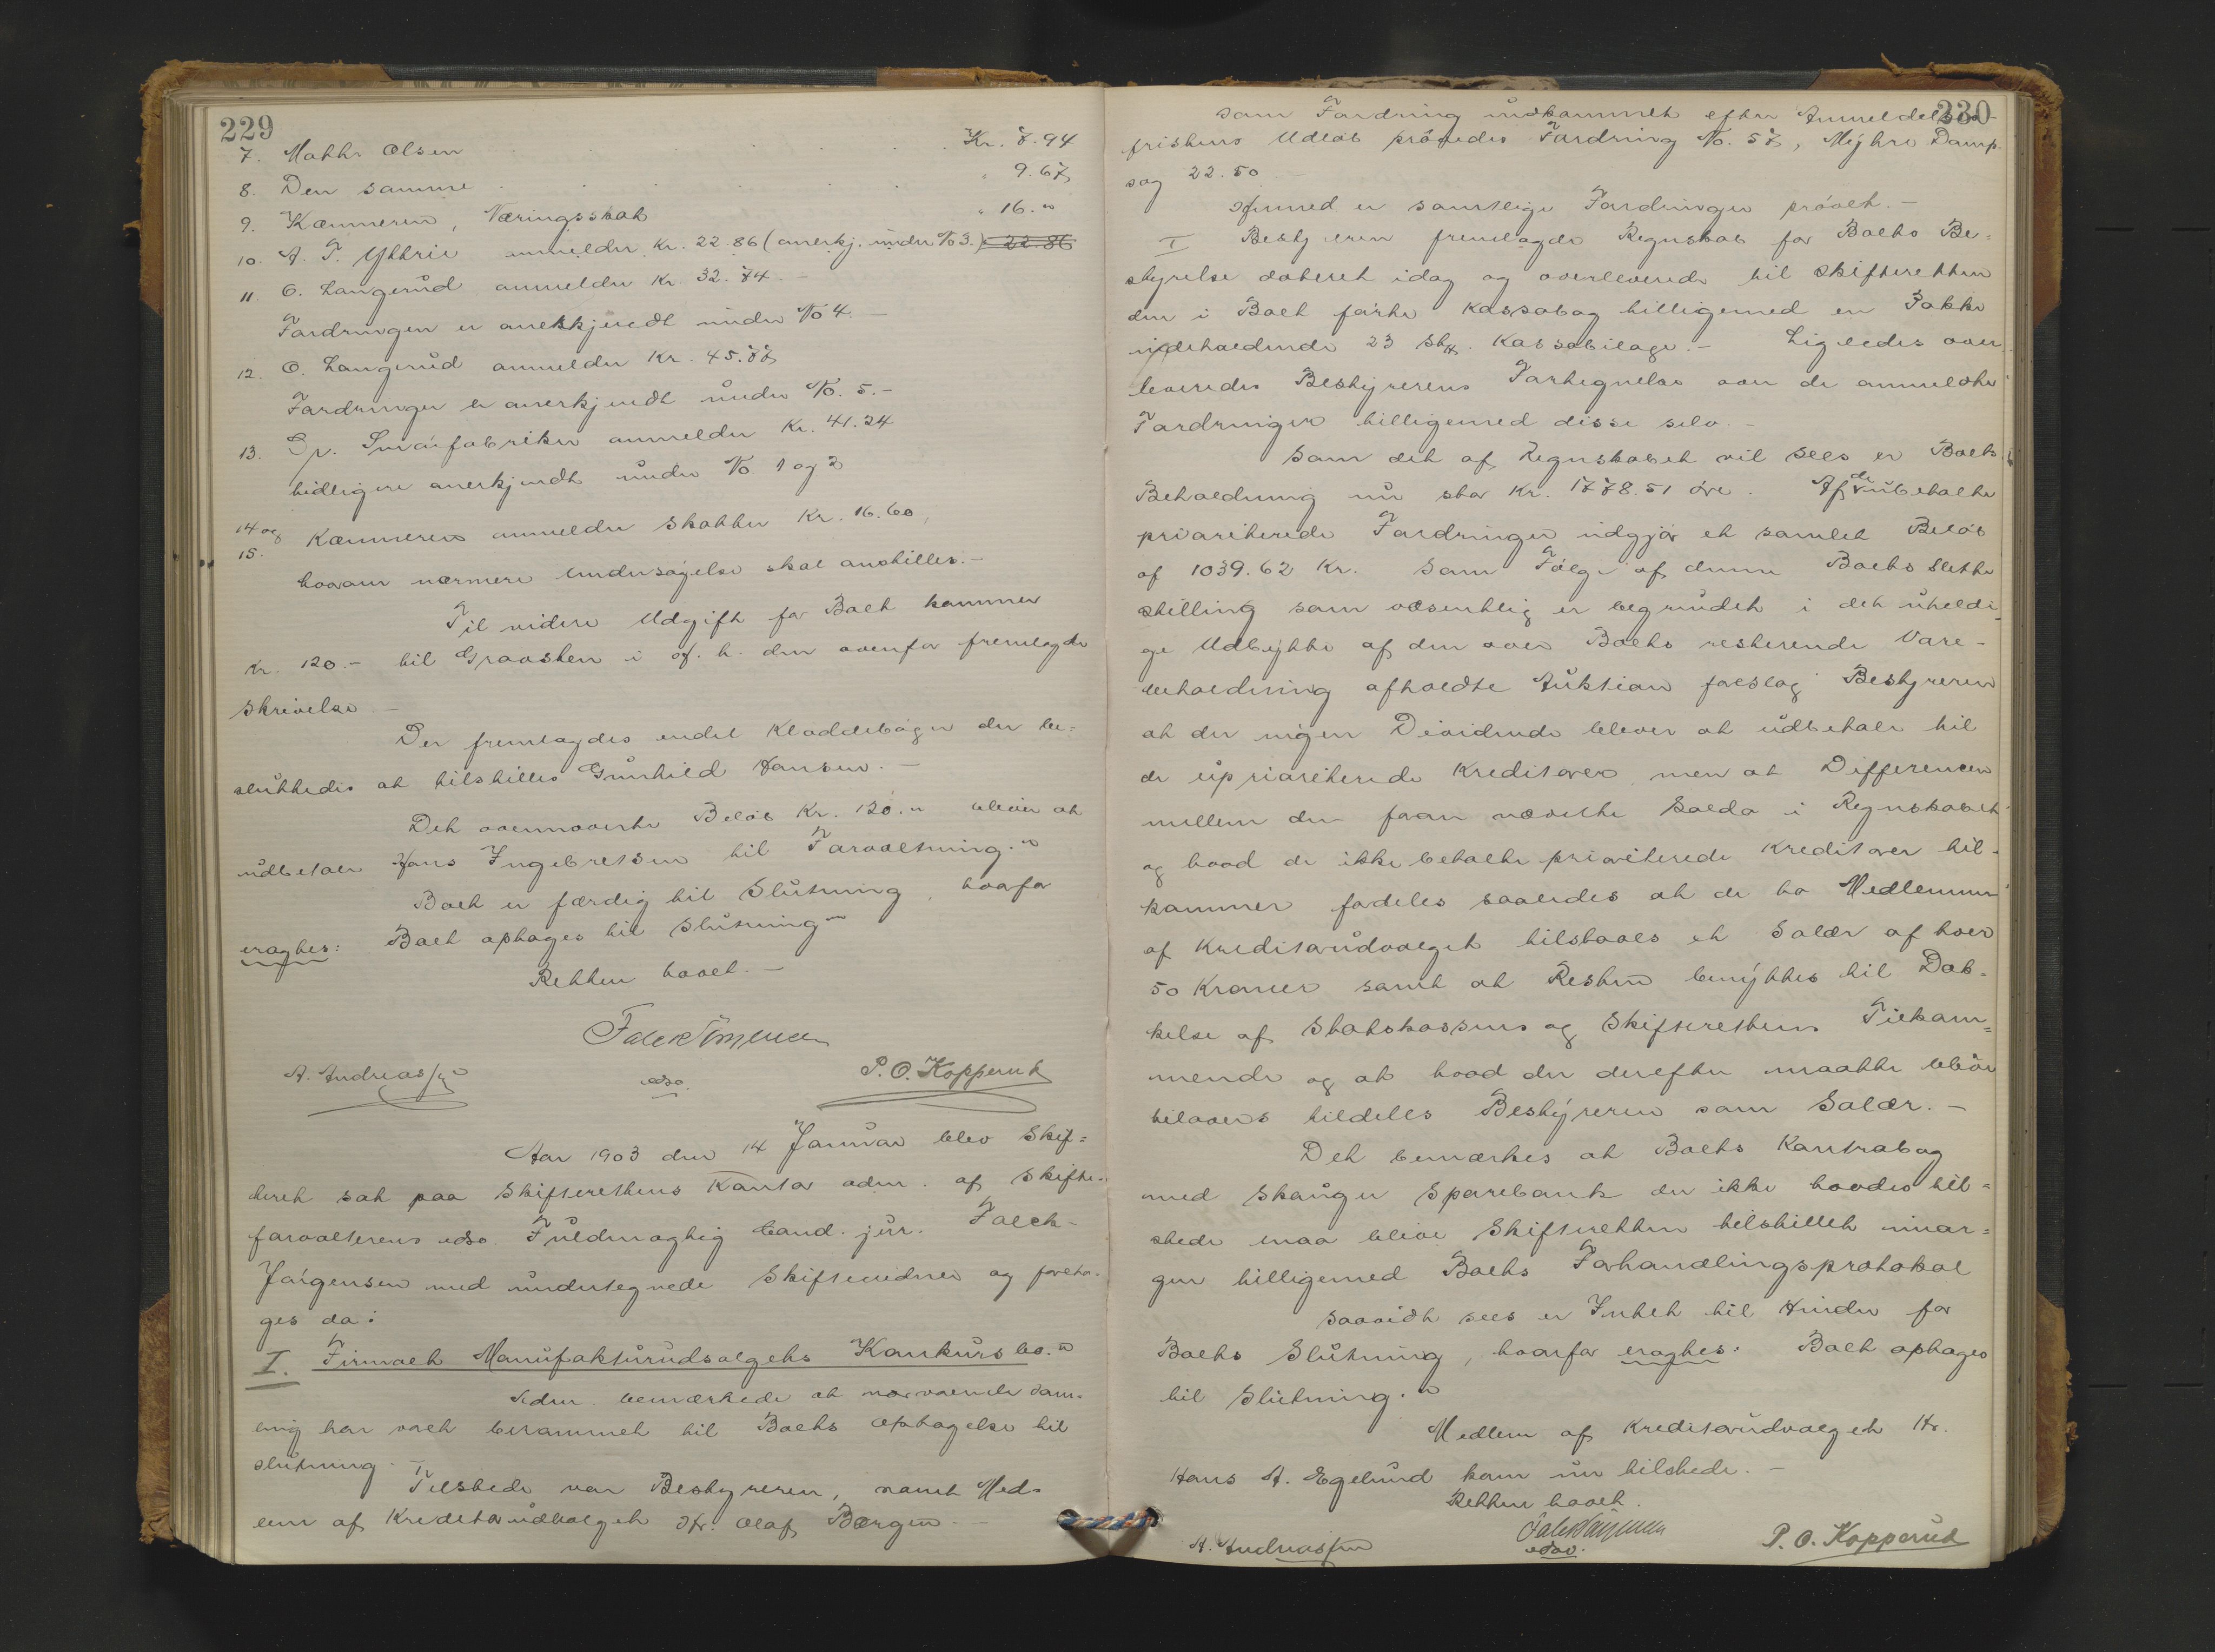 229
7. Mathr Olsen Kr. 7.94
8. Den samme " 9.67
9. Kæmneren, Næringsskat " 16."
10. A. T. Ythrie anmelder Kr. 22.86 (anerkj. under No 3.) " 22.86
11. O. Langerud anmelder Kr. 32.74 -
Fordringen er anerkjendt under No 4. -
12. O. Langerud anmelder Kr. 45.77
Fordringen er anerkjendt under No. 5. -
13. Dr. Smørfabriker anmelder Kr. 41.24
tidligere anerkjendt under No 1 og 2
14 og
15. Kæmneren anmelder Skatter Kr. 16.60,
hvorom nærmere Undersøgelse skal anstilles. -
Til videre Udgift for Boet kommer
Kr. 120. - til Gravsten i af. h. den ovenfor fremlagde
Skrivelse -
Der fremlagdes endel Kladdebøger der be-
sluttedes at tilstilles Gunhild Hansen. -
Det ovennævnte Beløb Kr. 120." bliver at
udbetale Hans Ingebretsen til Forvaltning."
Boet er færdig til Slutning, hvorfor
eragtes: Boet optages til Slutning "
Retten hævet. -
Falck Jørgensen
A. Andreassen edsv. P. O. Kopperud
Aar 1903 den 14 Januar blev Skif-
teret sat paa Skifterettens Kontor adm. af Skifte-
forvalterens edsv. Fuldmægtig Cand. jur. Falck-
Jørgensen med undertegnede Skiftevidner og foreto-
ges da:
I. Firmaet Manufakturudsalgets Konkursbo."
Adm. bemærkede at nærværende Sam-
ling har været berammet til Boets Optagelse til
Slutning. -
Tilstede var Bestyreren, samt Med-
lem af Kreditorudvalget Hr. Olaf Børgen -
230
Som Fordring indkommet efter Anmeldelses-
fristens Udløb prøvedes Fordring No. 57, Myhre Damp-
sag 22.50
Hermed er samtlige Fordringer prøvet. -
I Bestyreren fremlagde Regnskab for Boets Be-
styrelse dateret idag og overleverede til Skifteretten
den i Boet førte Kassabog tilligemed en Pakke
indeholdende 23 stk. Kassabilage. - Ligeledes over-
leveredes Bestyrerens Fortegnelse over de anmeldte
Fordringer tilligemed disse selv. -
Som det af Regnskabet vil sees er Boets
Beholdning nu stor Kr. 1778.51 øre. Af de ubetalte
prioriterede Fordringer udgjør et samlet Beløb
af 1039.62 Kr. Som Følge af denne Boets slette
Stilling som væsentlig er begrundet i det uheldi-
ge Udbytte af den over Boets resterende Vare-
beholdning afholdte Auktion foreslog Bestyreren
at der ingen Dividende bliver at udbetale til
de upriariterede Kreditorer men at Differencen
mellem den foran nævnte Saldo i Regnskabet
og hvad de ikke betalte prioriterede Kreditorer til-
kommer fordeles saaledes at de to Medlemmer
af Kreditorudvalget tilstaaes et Salær af hver
50 Kroner samt at Resten benyttes til Dæk-
kelse af Statskassens og Skifterettens Tilkom-
mende og at hvad der derefter maatte blive
tilovers tildeles Bestyreren som Salær. -
Det bemærkes at Boets Kontrabog
med Skauger Sparebank der ikke havdes til-
stede maa blive Skifteretten tilstillet imor-
gen tilligemed Boets Forhandlingsprotokol
Saavidt sees er Intet til Hinder for
Boets Slutning, hvorfor eragtes: Boet optages
til Slutning."
Medlem af Kreditorudvalget Hr.
Hans A. Egelund kom nu tilstede. -
Retten hævet.
A. Andreassen Falck Jørgensen edsv. P. O. Kopperud